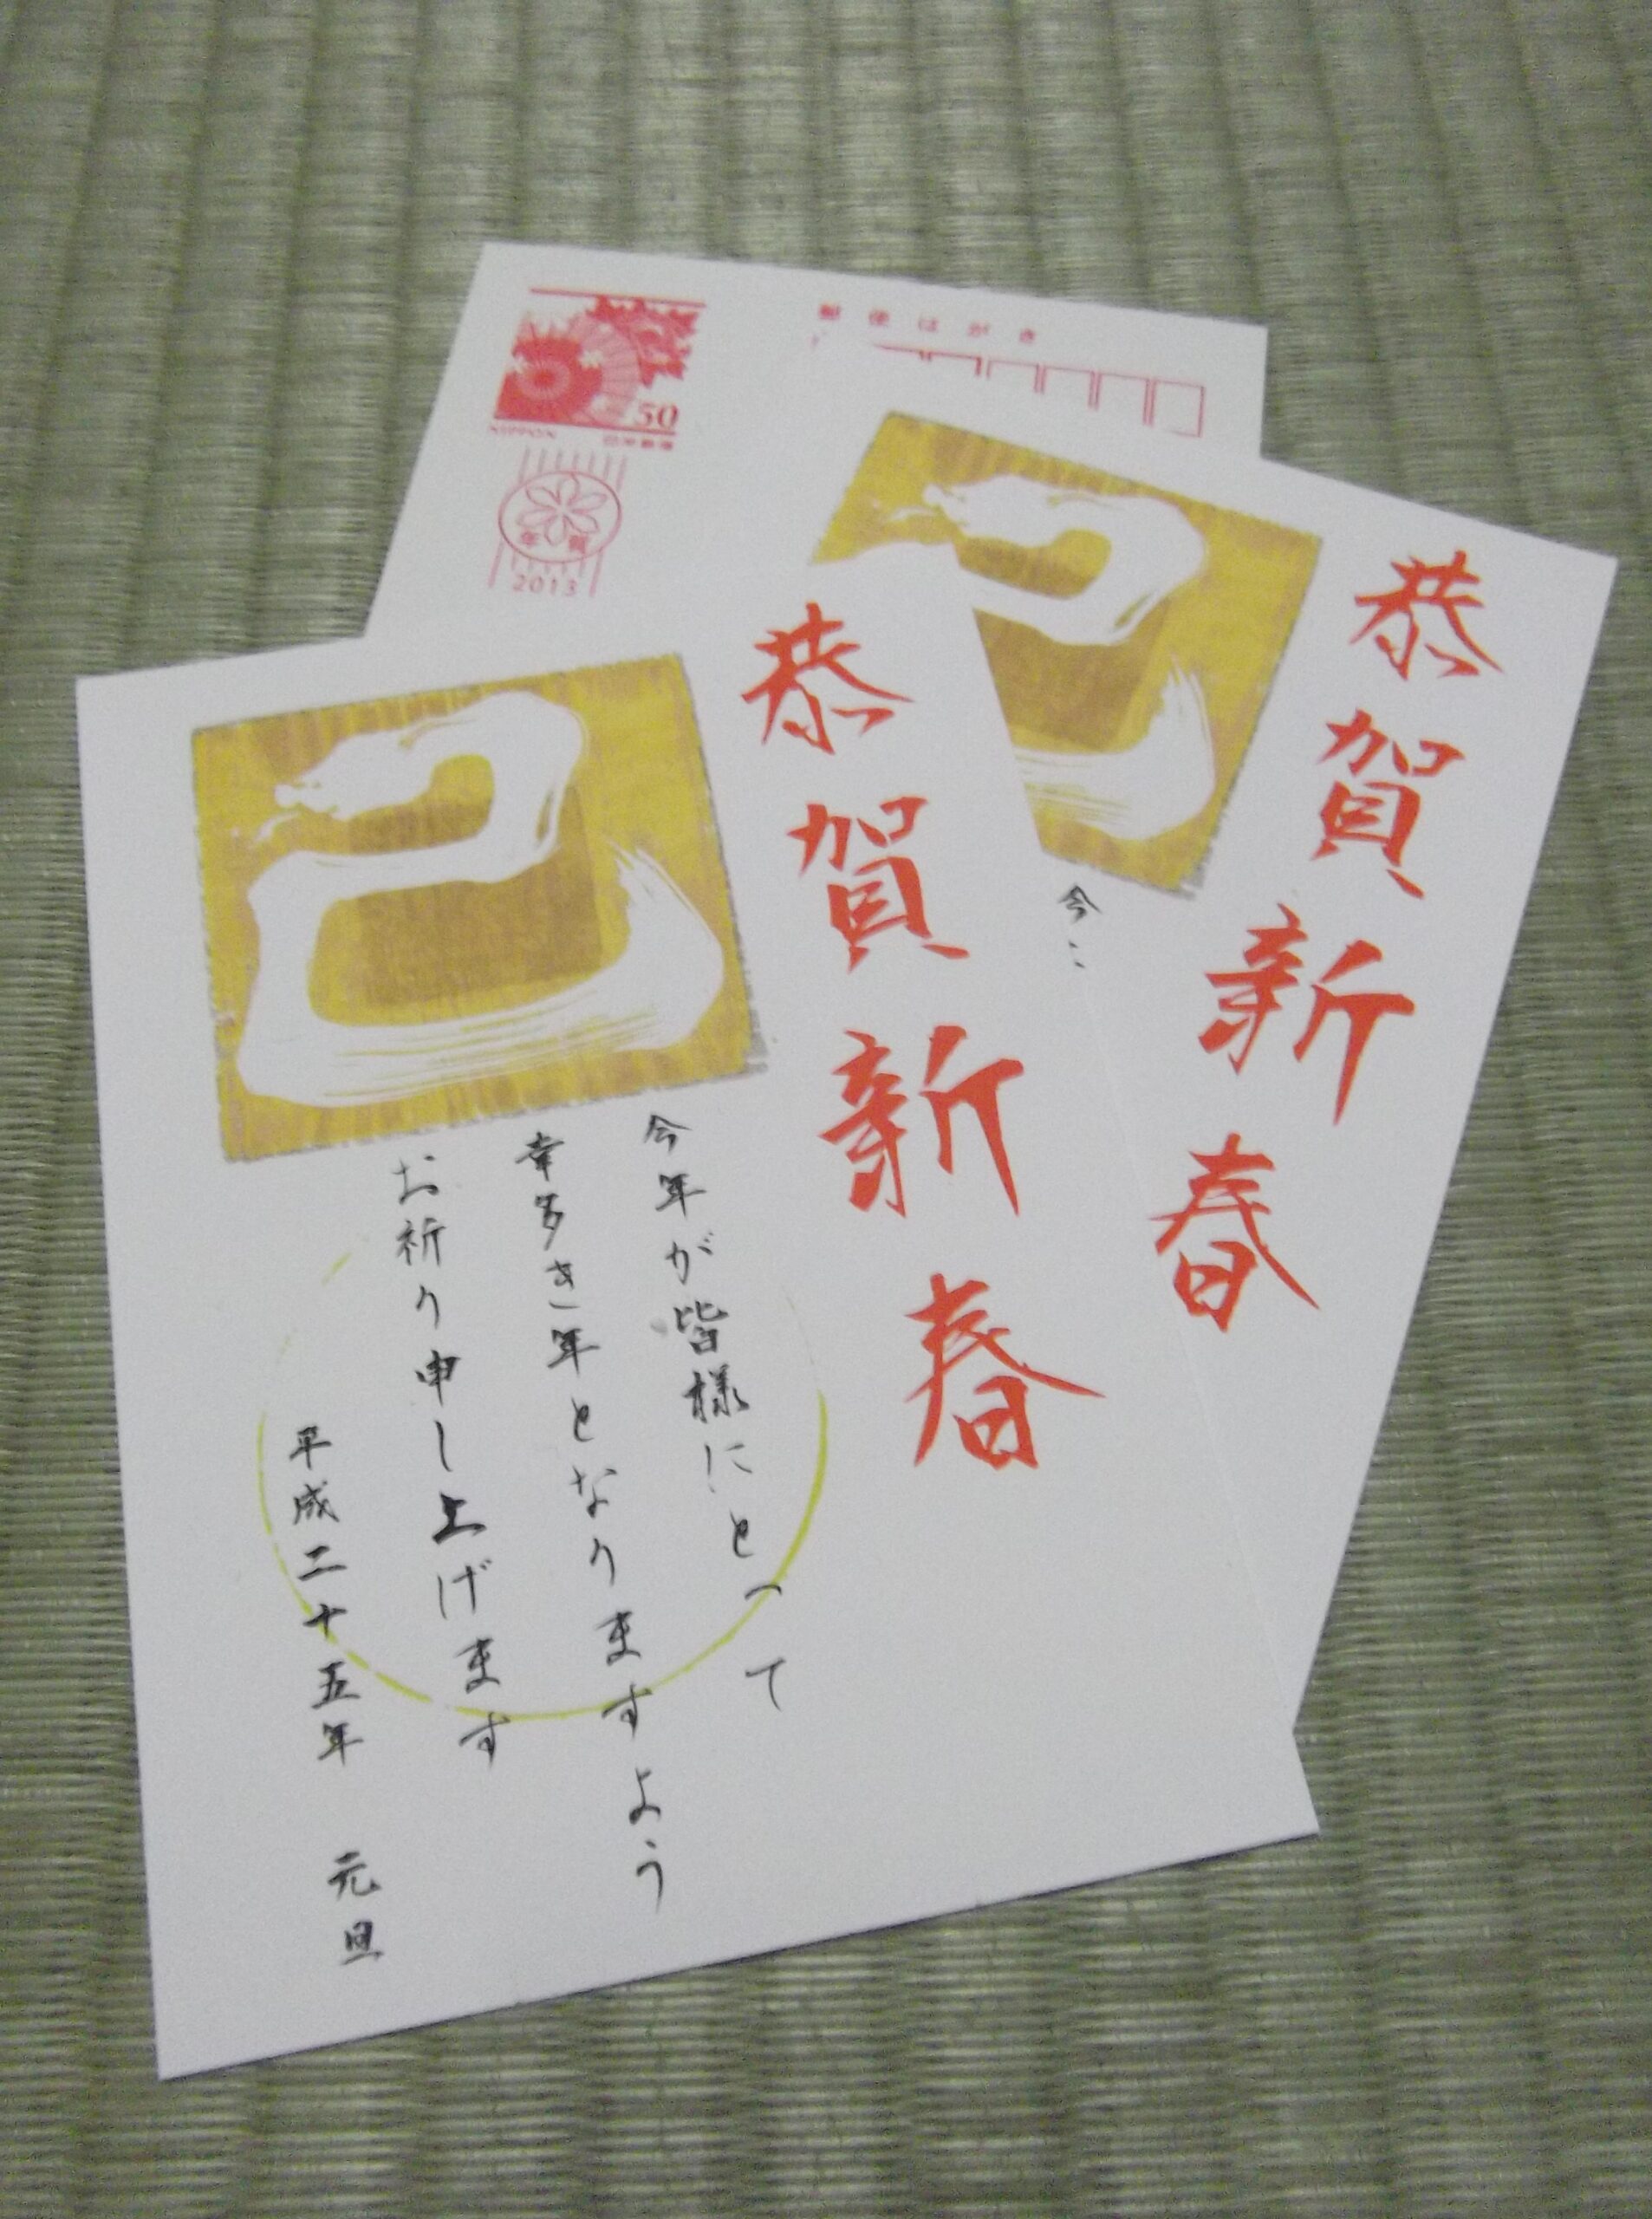 郵便はがき
50
NIPPON
日本郵便
年賀
2013
恭賀新春
巳
今
恭賀新春
巳
今年が皆様にとって
幸多き年となりますよう
お祈り申し上げます
平成二十五年 元旦